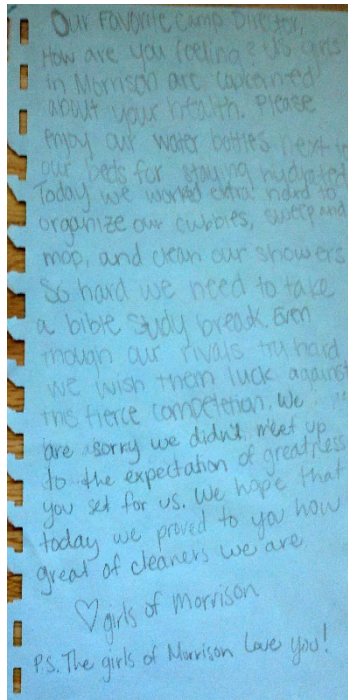 Our Favorite Camp Director,
How are you feeling? Us girls
in Morrison are concerned
about your health. Please
enjoy our water bottles next to
our beds for staying hydrated
Today we worked extra hard to
organize our cubbies, sweep and
mop, and clean our showers
So hard we need to take
a bible study break. Even
though our rivals try hard
we wish them luck against
this fierce competetion. We
are sorry we didn't meet up
to the expectation of greatness
you set for us. We hope that
today we proved to you how
great of cleaners we are.
♡ girls of Morrison
P.S. The girls of Morrison Love you!